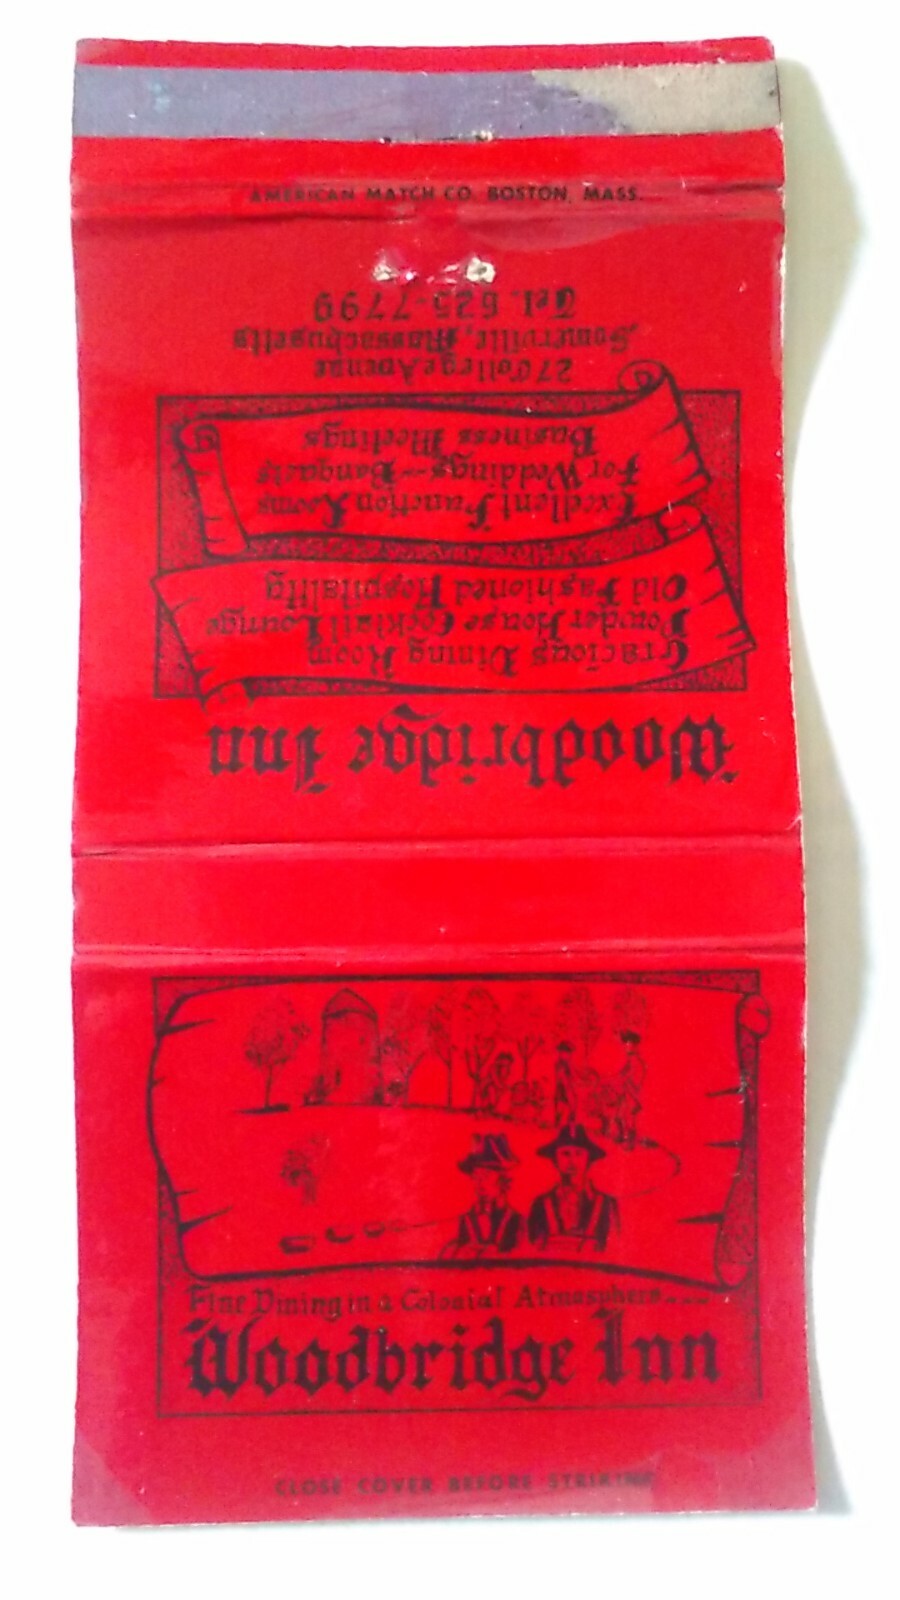 AMERICAN MATCH CO. BOSTON, MASS.
Woodbridge Inn
Gracious Dining Room
Powder House Cocktail Lounge
Old Fashioned Hospitality
Excellent Function Rooms
For Weddings - Banquets
Business Meetings
27 College Avenue
Somerville, Massachusetts
Tel. 625-7799
Fine Dining in a Colonial Atmosphere ---
Woodbridge Inn
CLOSE COVER BEFORE STRIKING